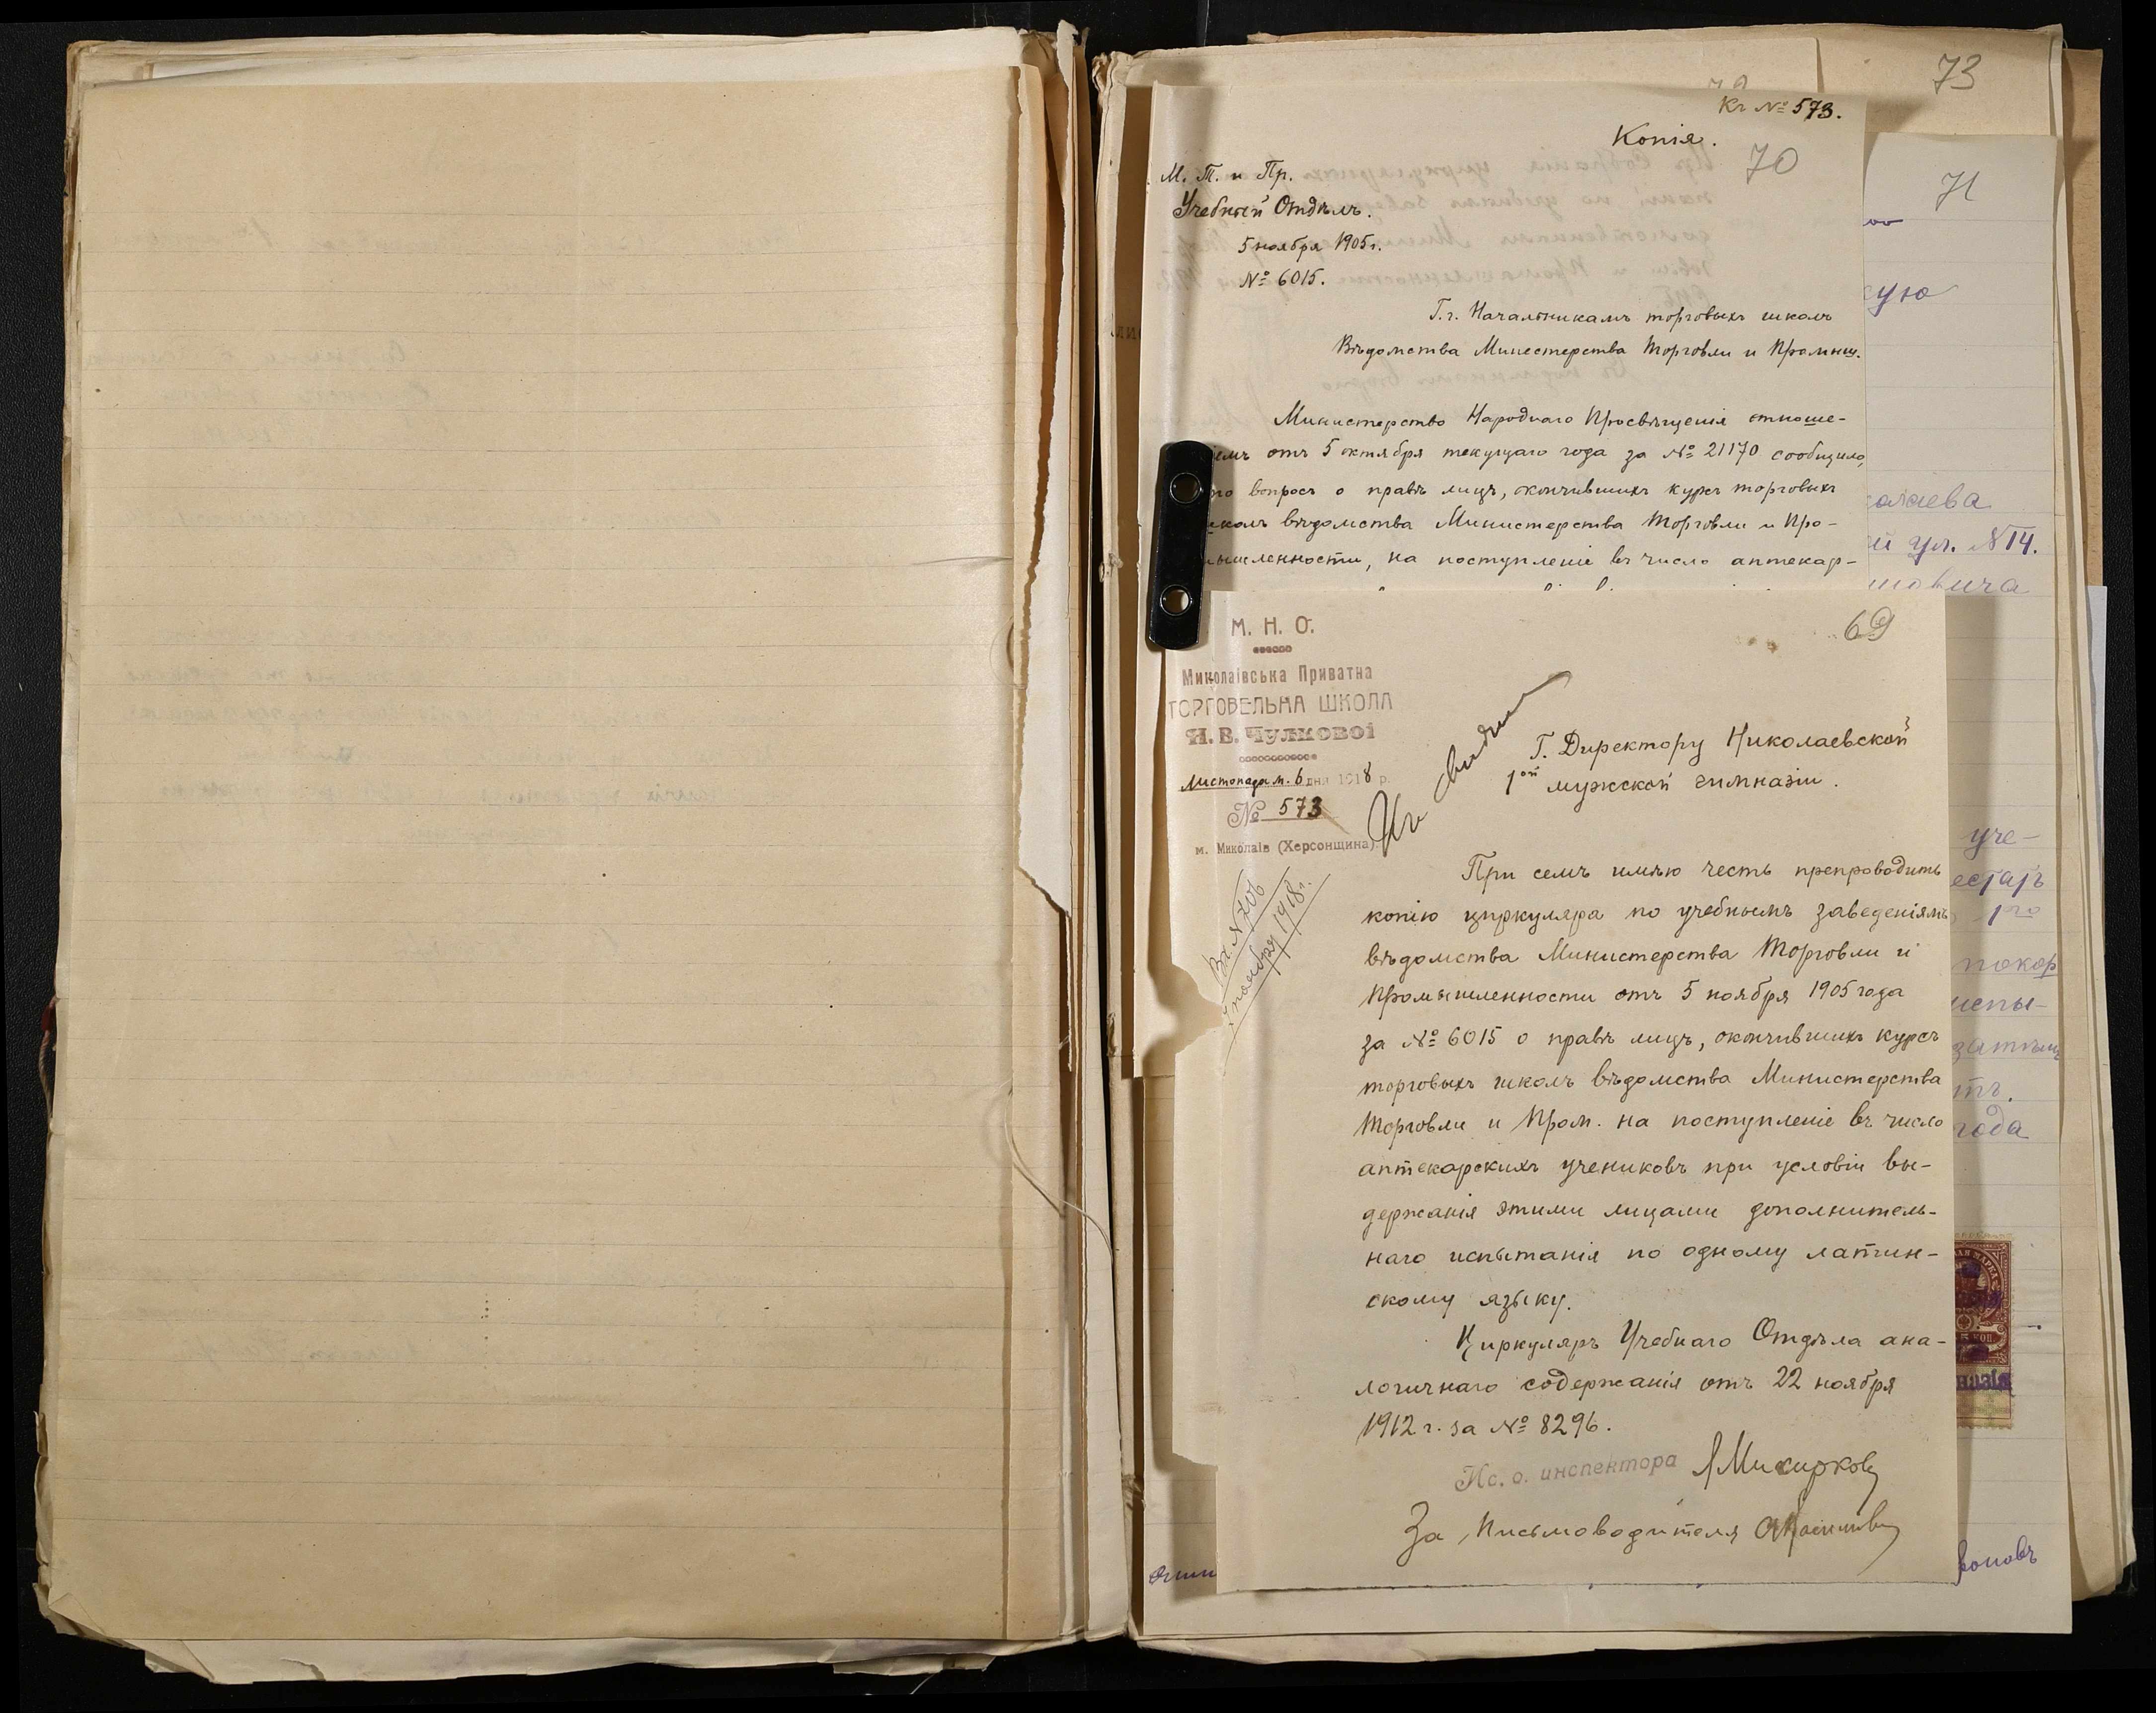 73
71
сую
ул. № 14.
уче-
1го
покор
года
Къ № 573.
Копія.
70
М. Т. и Пр.
Учебный Отдѣлъ.
5 ноября 1905 г.
№ 6015.
Г.г. Начальникамъ торговыхъ школъ
Вѣдомства Министерства Торговли и Промыш.
Министерство Народнаго Просвѣщенія отноше-
отъ 5 октября текущаго года за № 21170 сообщило,
вопросъ о правѣ лицъ, окончившихъ курсъ торговыхъ
вѣдомства Министерства Торговли и Про-
мышленности, на поступленіе въ число аптекар-
69
М. Н. О.
Миколаівська Приватна
ТОРГОВЕЛЬНА ШКОЛА
Н. В. Чулковоі
Листопада м. 6 дня 1918 р.
№ 573
м. Миколаів (Херсонщина).
Вх. № 706
7 ноября 1918 г.
Г. Директору Николаевской
1ой мужской гимназіи.
При семъ имѣю честь препроводить
копію циркуляра по учебнымъ заведеніямъ
вѣдомства Министерства Торговли и
Промышленности отъ 5 ноября 1905 года
за № 6015 о правѣ лицъ, окончившихъ курсъ
торговыхъ школъ вѣдомства Министерства
Торговли и Пром. на поступленіе въ число
аптекарскихъ учениковъ при условіи вы-
держанія этими лицами дополнитель-
наго испытанія по одному латин-
скому языку.
Циркуляръ Учебнаго Отдѣла ана-
логичнаго содержанія отъ 22 ноября
1912 г. за № 8296.
Ис. о. инспектора
За Письмоводителя